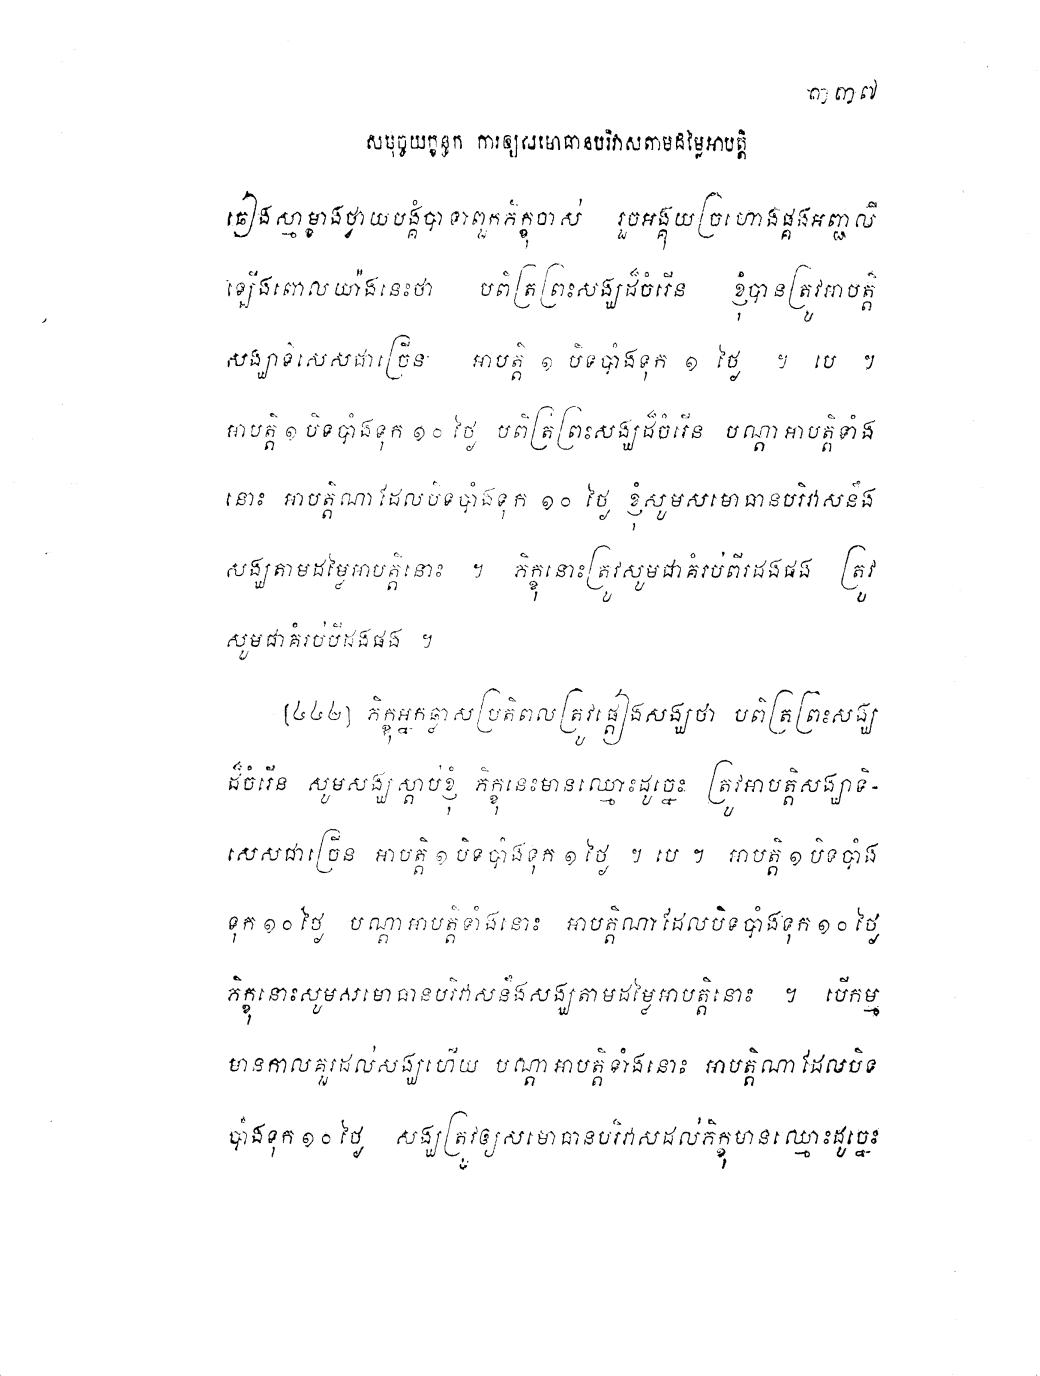 ៣៣៧
សមុច្ចយក្ខន្ធក ការឲ្យសមោធានបរិវាសតាមដម្លៃអាបត្តិ
ឆៀងស្មាម្ខាងថ្វាយបង្គំបាទាពួកភិក្ខុចាស់ រួចអង្គុយច្រហោងផ្គងអញ្ជលី
ឡើងពោលយ៉ាងនេះថា បពិត្រព្រះសង្ឃដ៏ចំរើន ខ្ញុំបានត្រូវអាបត្តិ
សង្ឃាទិសេសជាច្រើន អាបត្តិ ១ បិទបាំងទុក ១ ថ្ងៃ ។ បេ ។
អាបត្តិ ១ បិទបាំងទុក ១០ ថ្ងៃ បពិត្រព្រះសង្ឃដ៏ចំរើន បណ្តាអាបត្តិទាំង
នោះ អាបត្តិណាដែលបិទបាំងទុក ១០ ថ្ងៃ ខ្ញុំសូមសមោធានបរិវាសនឹង
សង្ឃតាមដម្លៃអាបត្តិនោះ ។ ភិក្ខុនោះត្រូវសូមជាគំរប់ពីរដងផង ត្រូវ
សូមជាគំរប់បីដងផង ។
(៤៤២) ភិក្ខុអ្នកឆ្លាសប្រតិពលត្រូវផ្តៀងសង្ឃថា បពិត្រព្រះសង្ឃ
ដ៏ចំរើន សូមសង្ឃស្តាប់ខ្ញុំ ភិក្ខុនេះមានឈ្មោះដូច្នេះ ត្រូវអាបត្តិសង្ឃាទិ-
សេសជាច្រើន អាបត្តិ ១ បិទបាំងទុក ១ ថ្ងៃ ។ បេ ។ អាបត្តិ ១ បិទបាំង
ទុក ១០ ថ្ងៃ បណ្តាអាបត្តិទាំងនោះ អាបត្តិណាដែលបិទបាំងទុក ១០ ថ្ងៃ
ភិក្ខុនោះសូមសមោធានបរិវាសនឹងសង្ឃតាមដម្លៃអាបត្តិនោះ ។ បើកម្ម
មានកាលគួរដល់សង្ឃហើយ បណ្តាអាបត្តិទាំងនោះ អាបត្តិណាដែលបិទ
បាំងទុក ១០ ថ្ងៃ សង្ឃត្រូវឲ្យសមោធានបរិវាសដល់ភិក្ខុមានឈ្មោះដូច្នេះ